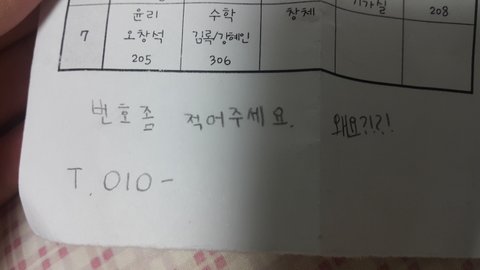 윤리 수학 창체 기가실 208
7 오창석 김록/강혜인
205 306
번호좀 적어주세요. 왜요?!?!
T. 010-